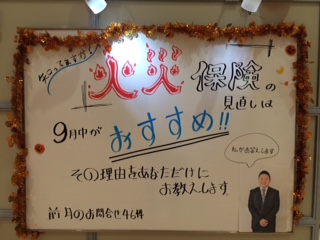 知ってますか?
火災保険の
見直しは
9月中が
おすすめ!!
その理由をあなただけに
お教えします
私がお答えします
前月のお問合せ46件